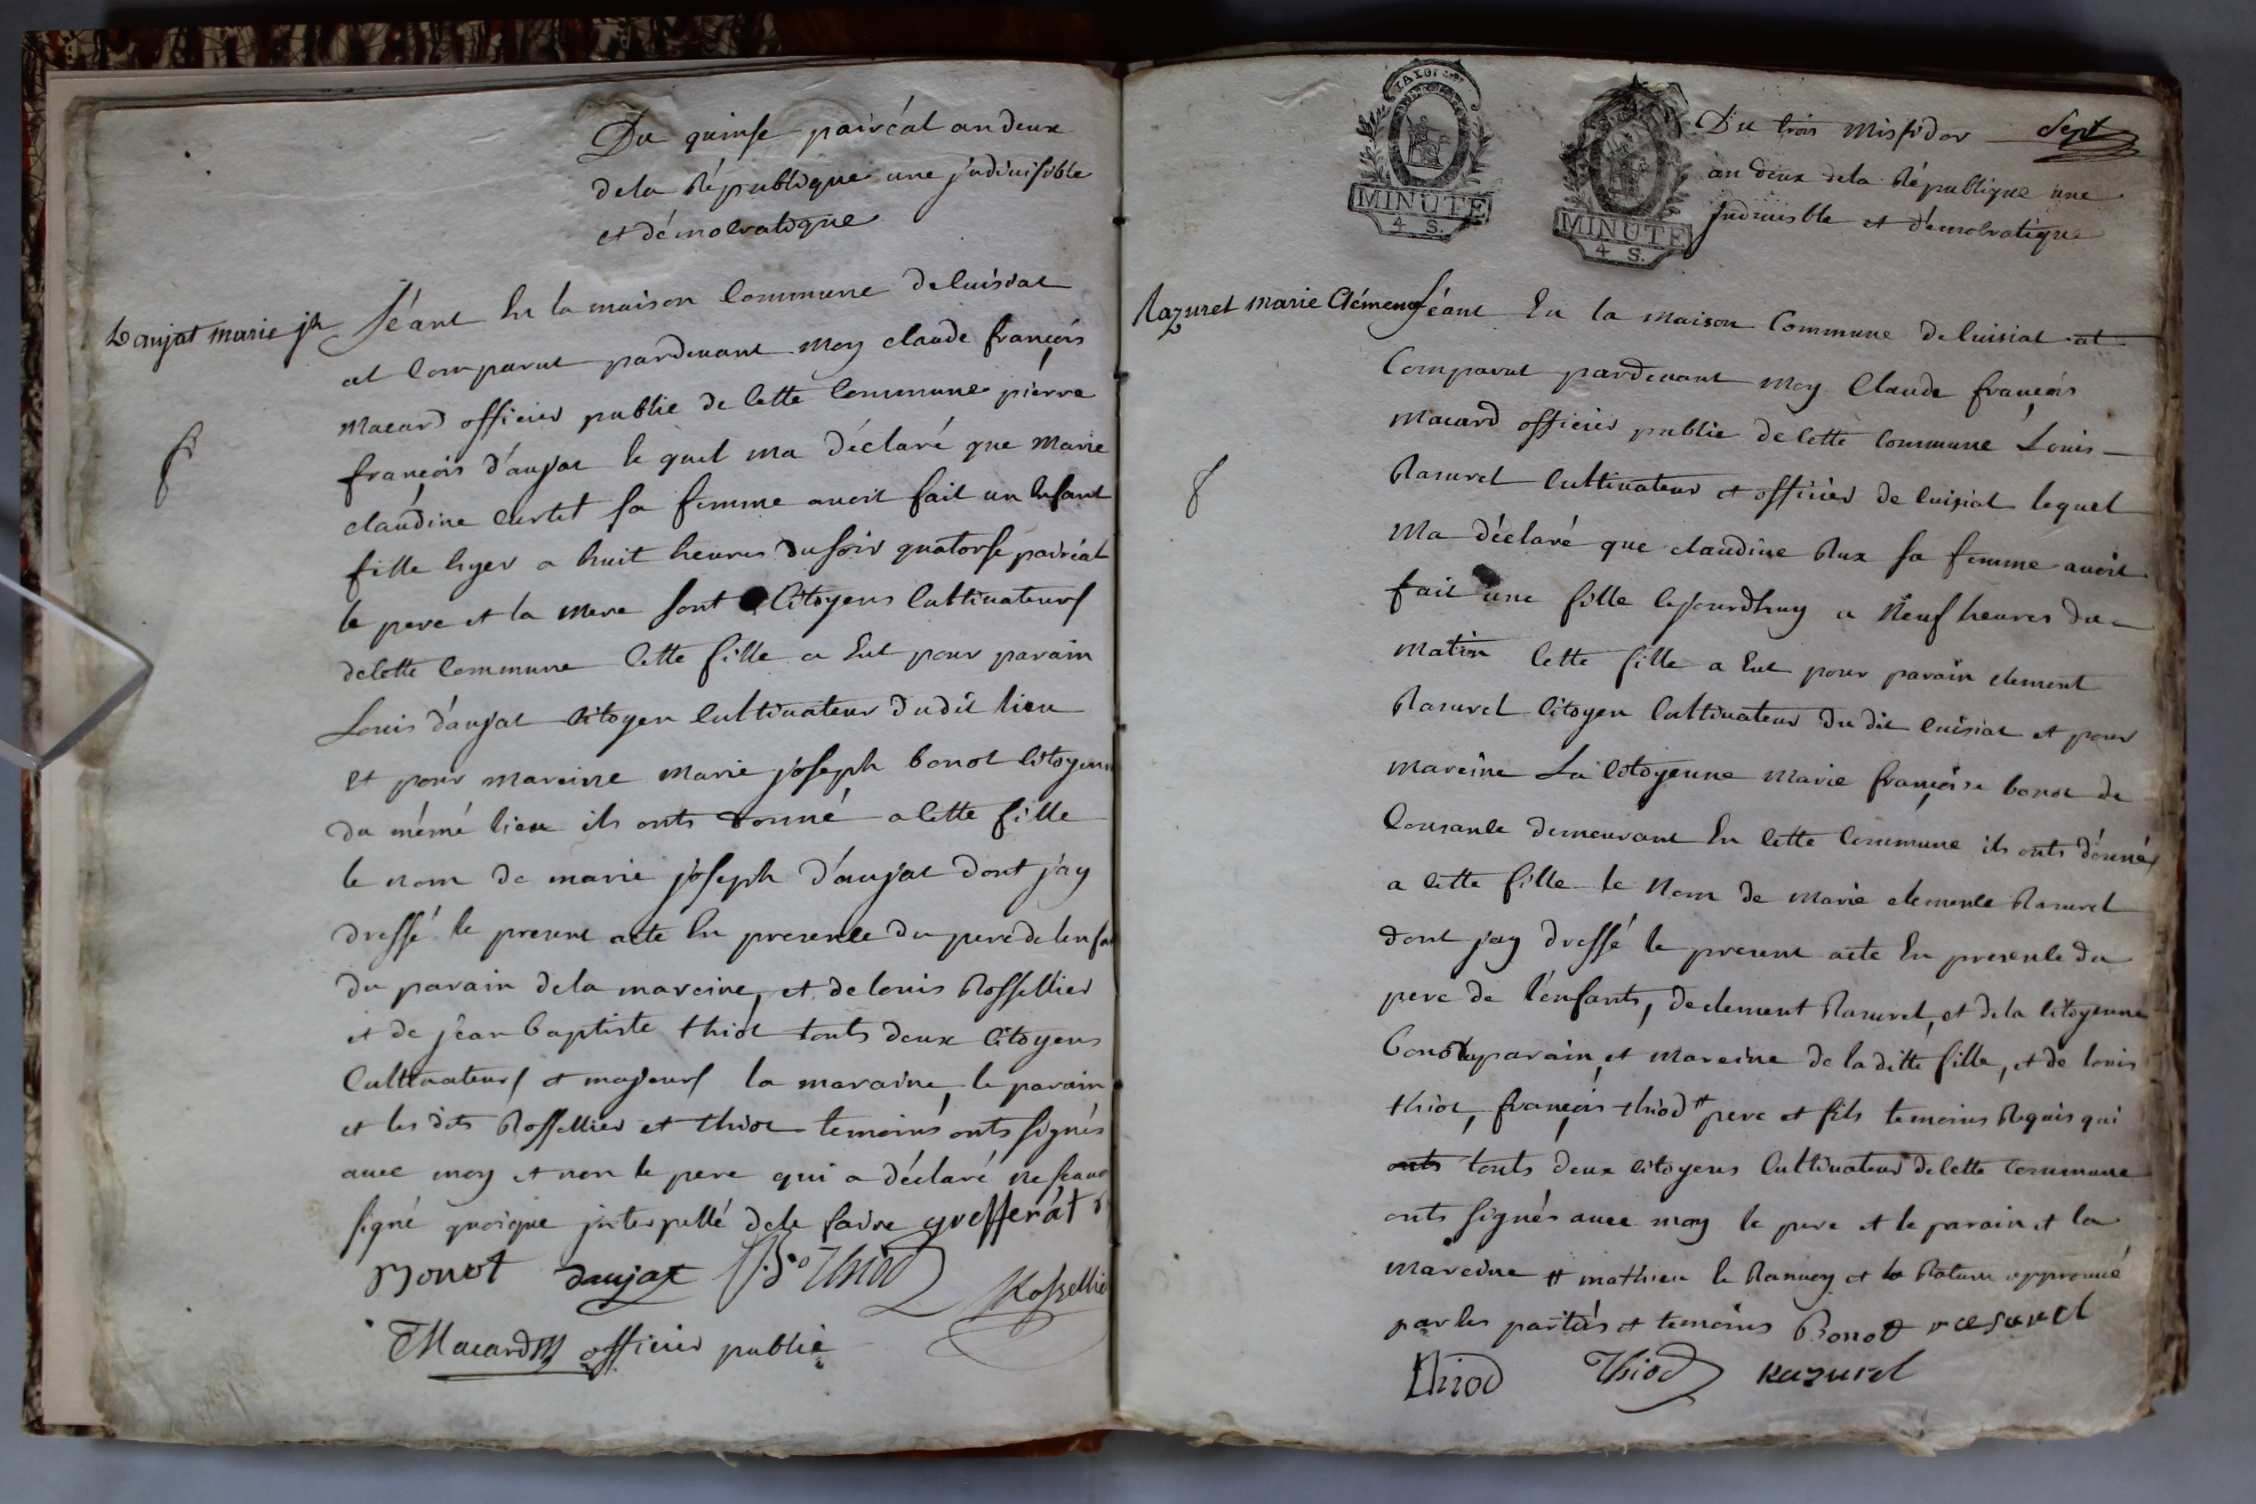 Du quinse pairéal an deux
de la République une jndivisible
et démocratique
Daujat marie jh
Séant En la maison Commune de luisiat
at Comparut pardevant Moy claude françois
Macard officier public de Cette Commune pierre
françois d'aujat le quel ma déclaré que Marie
claudine Curtet sa femme avoit fait un Enfant
fille hyer a huit heures du soir quatorse pairéal
le pere et la Mere sont Citoyens Cultivateurs
de Cette Commune Cette fille a Eut pour parain
Louis d'aujat Citoyen Cultivateur dudit lieu
et pour mareine Marie joseph bonot Citoyenne
du même lieu ils onts donné a Cette fille
le nom de marie joseph d'aujat dont j'ay
dressé le present acte En presence du pere de lenfa
du parain de la mareine, et de louis Rossellier
et de jean baptiste thiot touts deux Citoyens
Cultivateurs et majeurs la maraine, le parain
et les dits Rossellier et thiot temoins onts signés
avec moy et non le pere qui a déclaré ne scavo
signé quoique jnterpellé de le faire grefferat
Bonot daujat J.B. Thiod
Rossellie
Macard officier public
MINUTE
4 S.
MINUTE
4 S.
Du trois Missidor Sept
an deux de la République une
Jndivisble et démocratique
Razuret marie Clémence
Séant En la Maison Commune de luisiat at
Comparut pardevant Moy Claude françois
Macard officier public de Cette Commune Louis
Rasuret Cultivateur et officier de luisiat lequel
Ma déclaré que claudine Rux sa femme avoit
fait une fille cejourdhuy a Neuf heures du
matin Cette fille a Eut pour parain clement
Rasuret Citoyen Cultivateur du dit luisiat et pour
mareine La Citoyenne Marie françoise bonot de
Cousance demeurant En Cette Commune ils onts donnés
a Cette fille le Nom de Marie clemence Rasuret
dont jay dressé le present acte En presence du
pere de l'enfants, de clement Rasuret, et de la Citoyenne
bonot parain, et Mareine de la ditte fille, et de louis
thiot, françois thiod # pere et fils temoins Requis qui
onts touts deux citoyens Cultivateur de Cette Commune
onts signés avec moy le pere et le parain et la
Mareine # mathieu le Rannoy et la Rature approuvé
par les partiés et temoins Bonot rasuret
Thiod Thiod Razuret